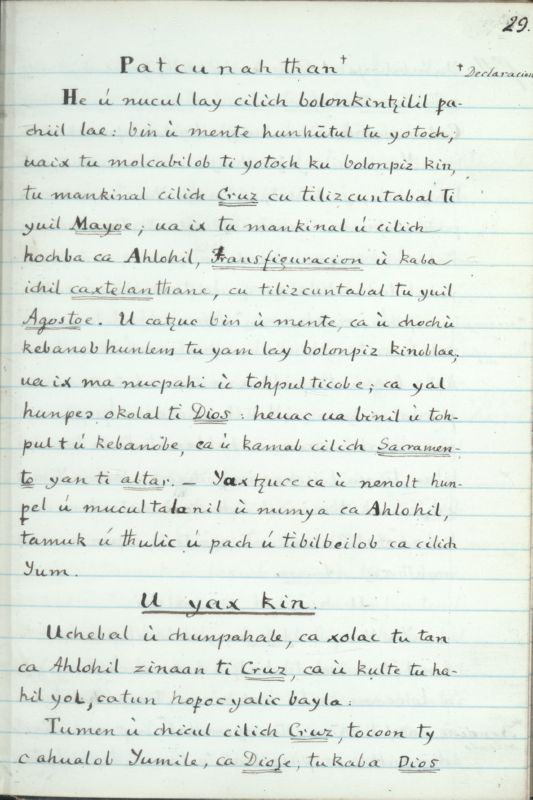 29.
Patcunah than†
† Declaracion
He ú nucul lay cilich bolonkintzilil pa-
chiil lae: bin ù mente hunhūtul tu yotoch;
uaix tu molcabilob ti yotoch ku bolonpiz kin,
tu mankinal cilich Cruz cu tiliz cuntabal ti
yuil Mayoe; ua ix tu mankinal ú cilich
hochba ca Ahlohil, Transfiguracion ù kaba
ichil caxtelanthane, cu tilizcuntabal tu yuil
Agostoe. U catzuc bin ù mente, ca ù chochù
kebanob hunlem tu yam lay bolonpiz kinoblae;
ua ix ma nucpahi ù tohpulticobe; ca yal
hunpeɔ okolal ti Dios: heuac ua binil ù toh-
pult ú kebanobe, ca ù kamab cilich Sacramen-
to yan ti altar. — Yaxtzucc ca ù nenolt hun-
pel ú mucultalanil ù numya ca Ahlohil,
tamuk ú thulic ú pach ú tibilbeilob ca cilich
Yum.
U yax kin.
Uchebal ù chunpahale, ca xolac tu tan
ca Ahlohil zinaan ti Cruz, ca ù kulte tu ha-
hil yol, catun hopoc yalic bayla:
Tumen ù chicul cilich Cruz, tocoon ty
c ahualob Yumile, ca Diose, tu kaba Dios